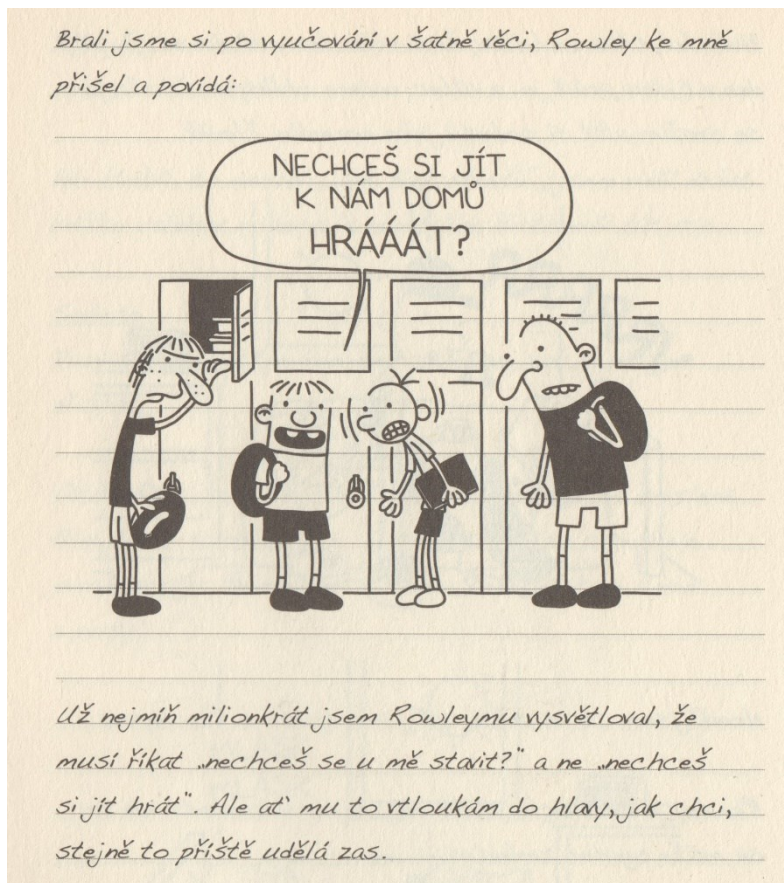 Brali jsme si po vyučování v šatně věci, Rowley ke mně
přišel a povídá:
NECHCEŠ SI JÍT
K NÁM DOMŮ
HRÁÁÁT?
Už nejmíň milionkrát jsem Rowleymu vysvětloval, že
musí říkat „nechceš se u mě stavit?" a ne „nechceš
si jít hrát". Ale ať mu to vtloukám do hlavy, jak chci,
stejně to příště udělá zas.